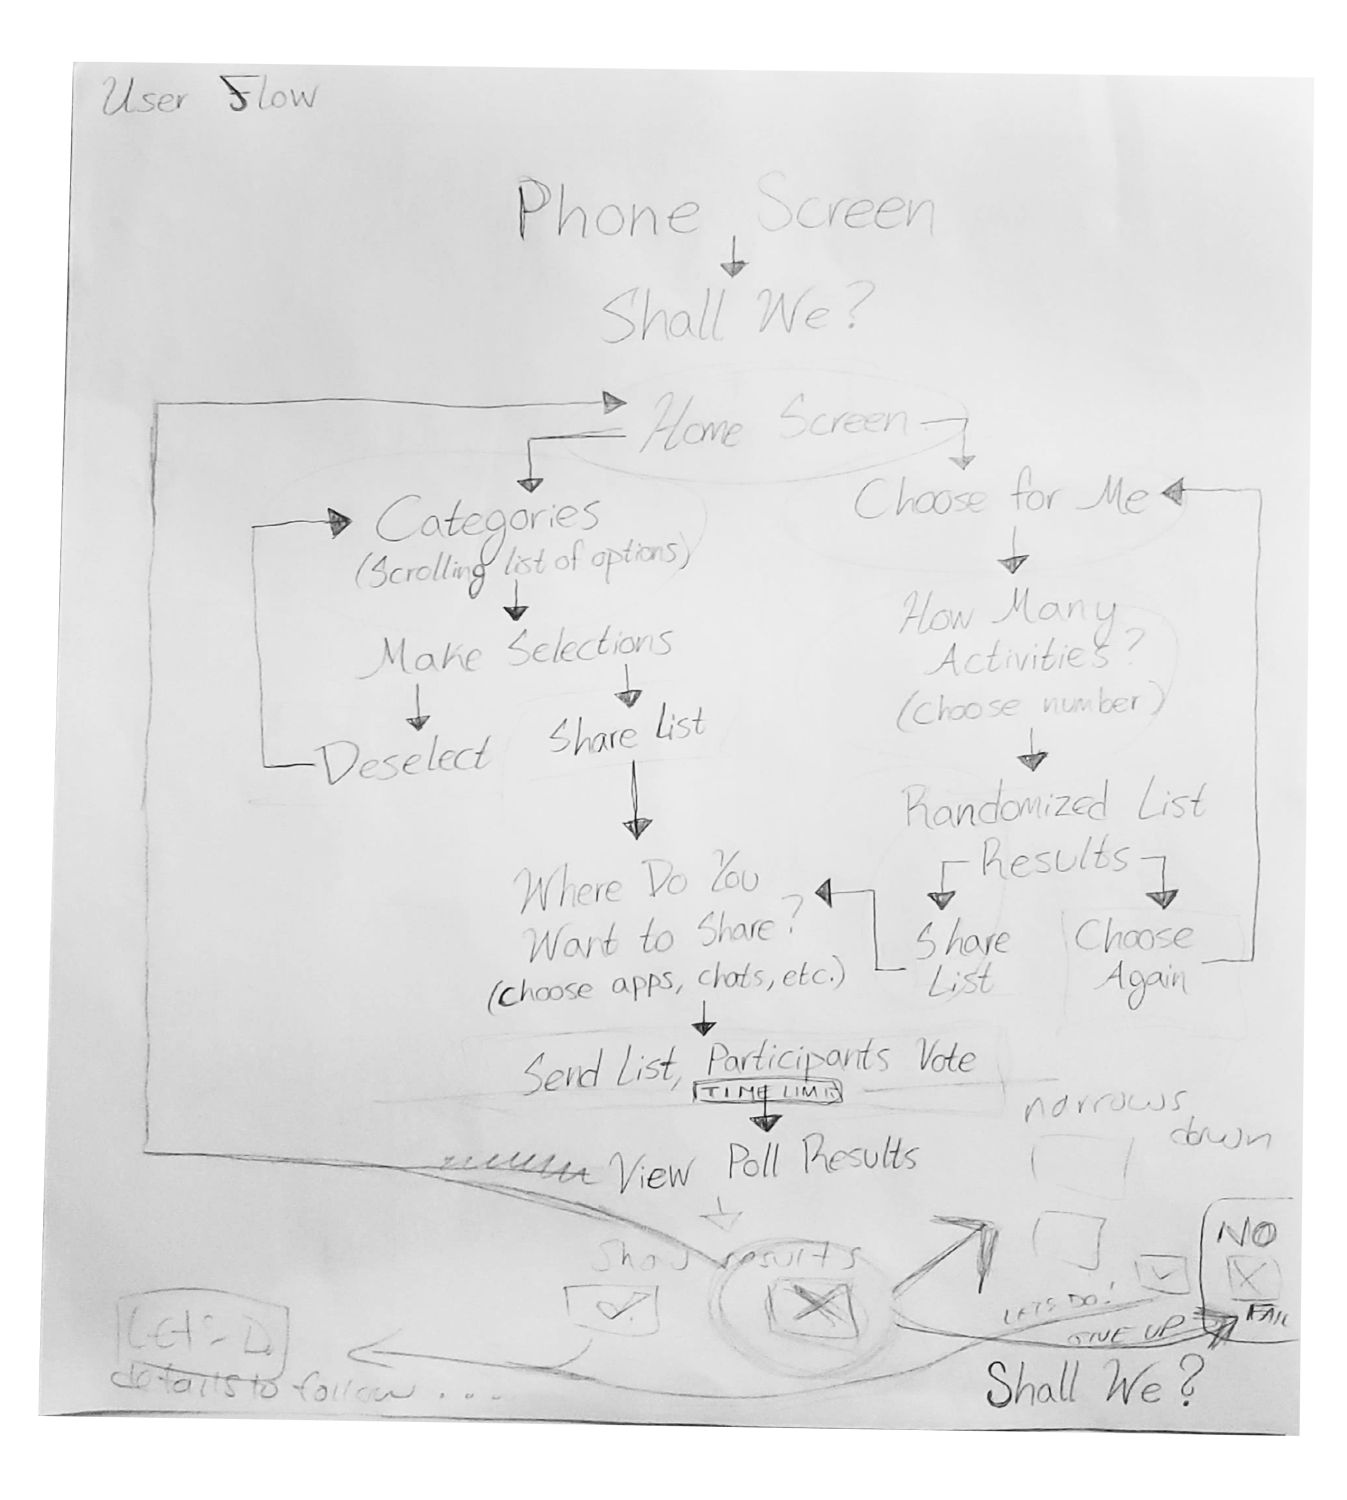 User Flow
Phone Screen
Shall We?
Home Screen
Categories
(Scrolling list of options)
Make Selections
Deselect
Share List
Choose for Me
How Many
Activities?
(choose number)
Randomized List
Results
Share
List
Choose
Again
Where Do You
Want to Share?
(choose apps, chats, etc.)
Send List, Participants Vote
TIME LIMIT
narrows
down
View Poll Results
results
NO
FAIL
LETS DO!
GIVE UP
details to follow ....
Shall We?